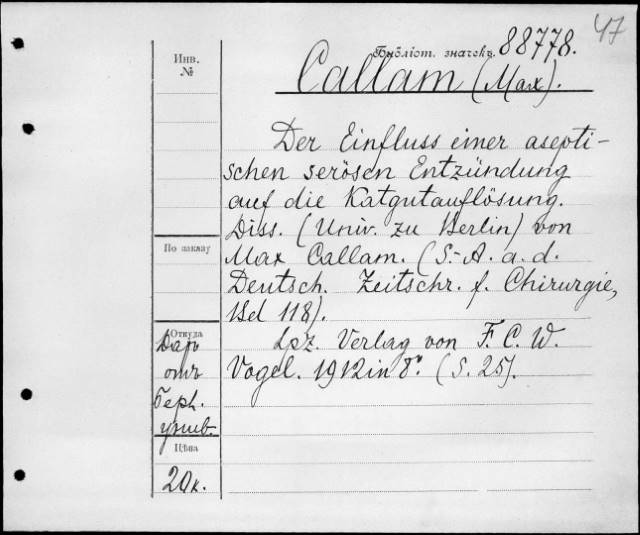 47
Библіот. значекъ. 88778.
Инв.
№
Callam (Max).
Der Einfluss einer asepti-
schen serösen Entzündung
auf die Katgutauflösung.
Diss. (Univ. zu Berlin) von
По заказу
Max Callam. (S.-A. a. d.
Deutsch. Zeitschr. f. Chirurgie,
Bd 118).
Откуда
Даръ
отъ
Берл.
унив.
Lpz. Verlag von F. C. W.
Vogel. 1912 in 8°. (S. 25).
Цѣна
20к.